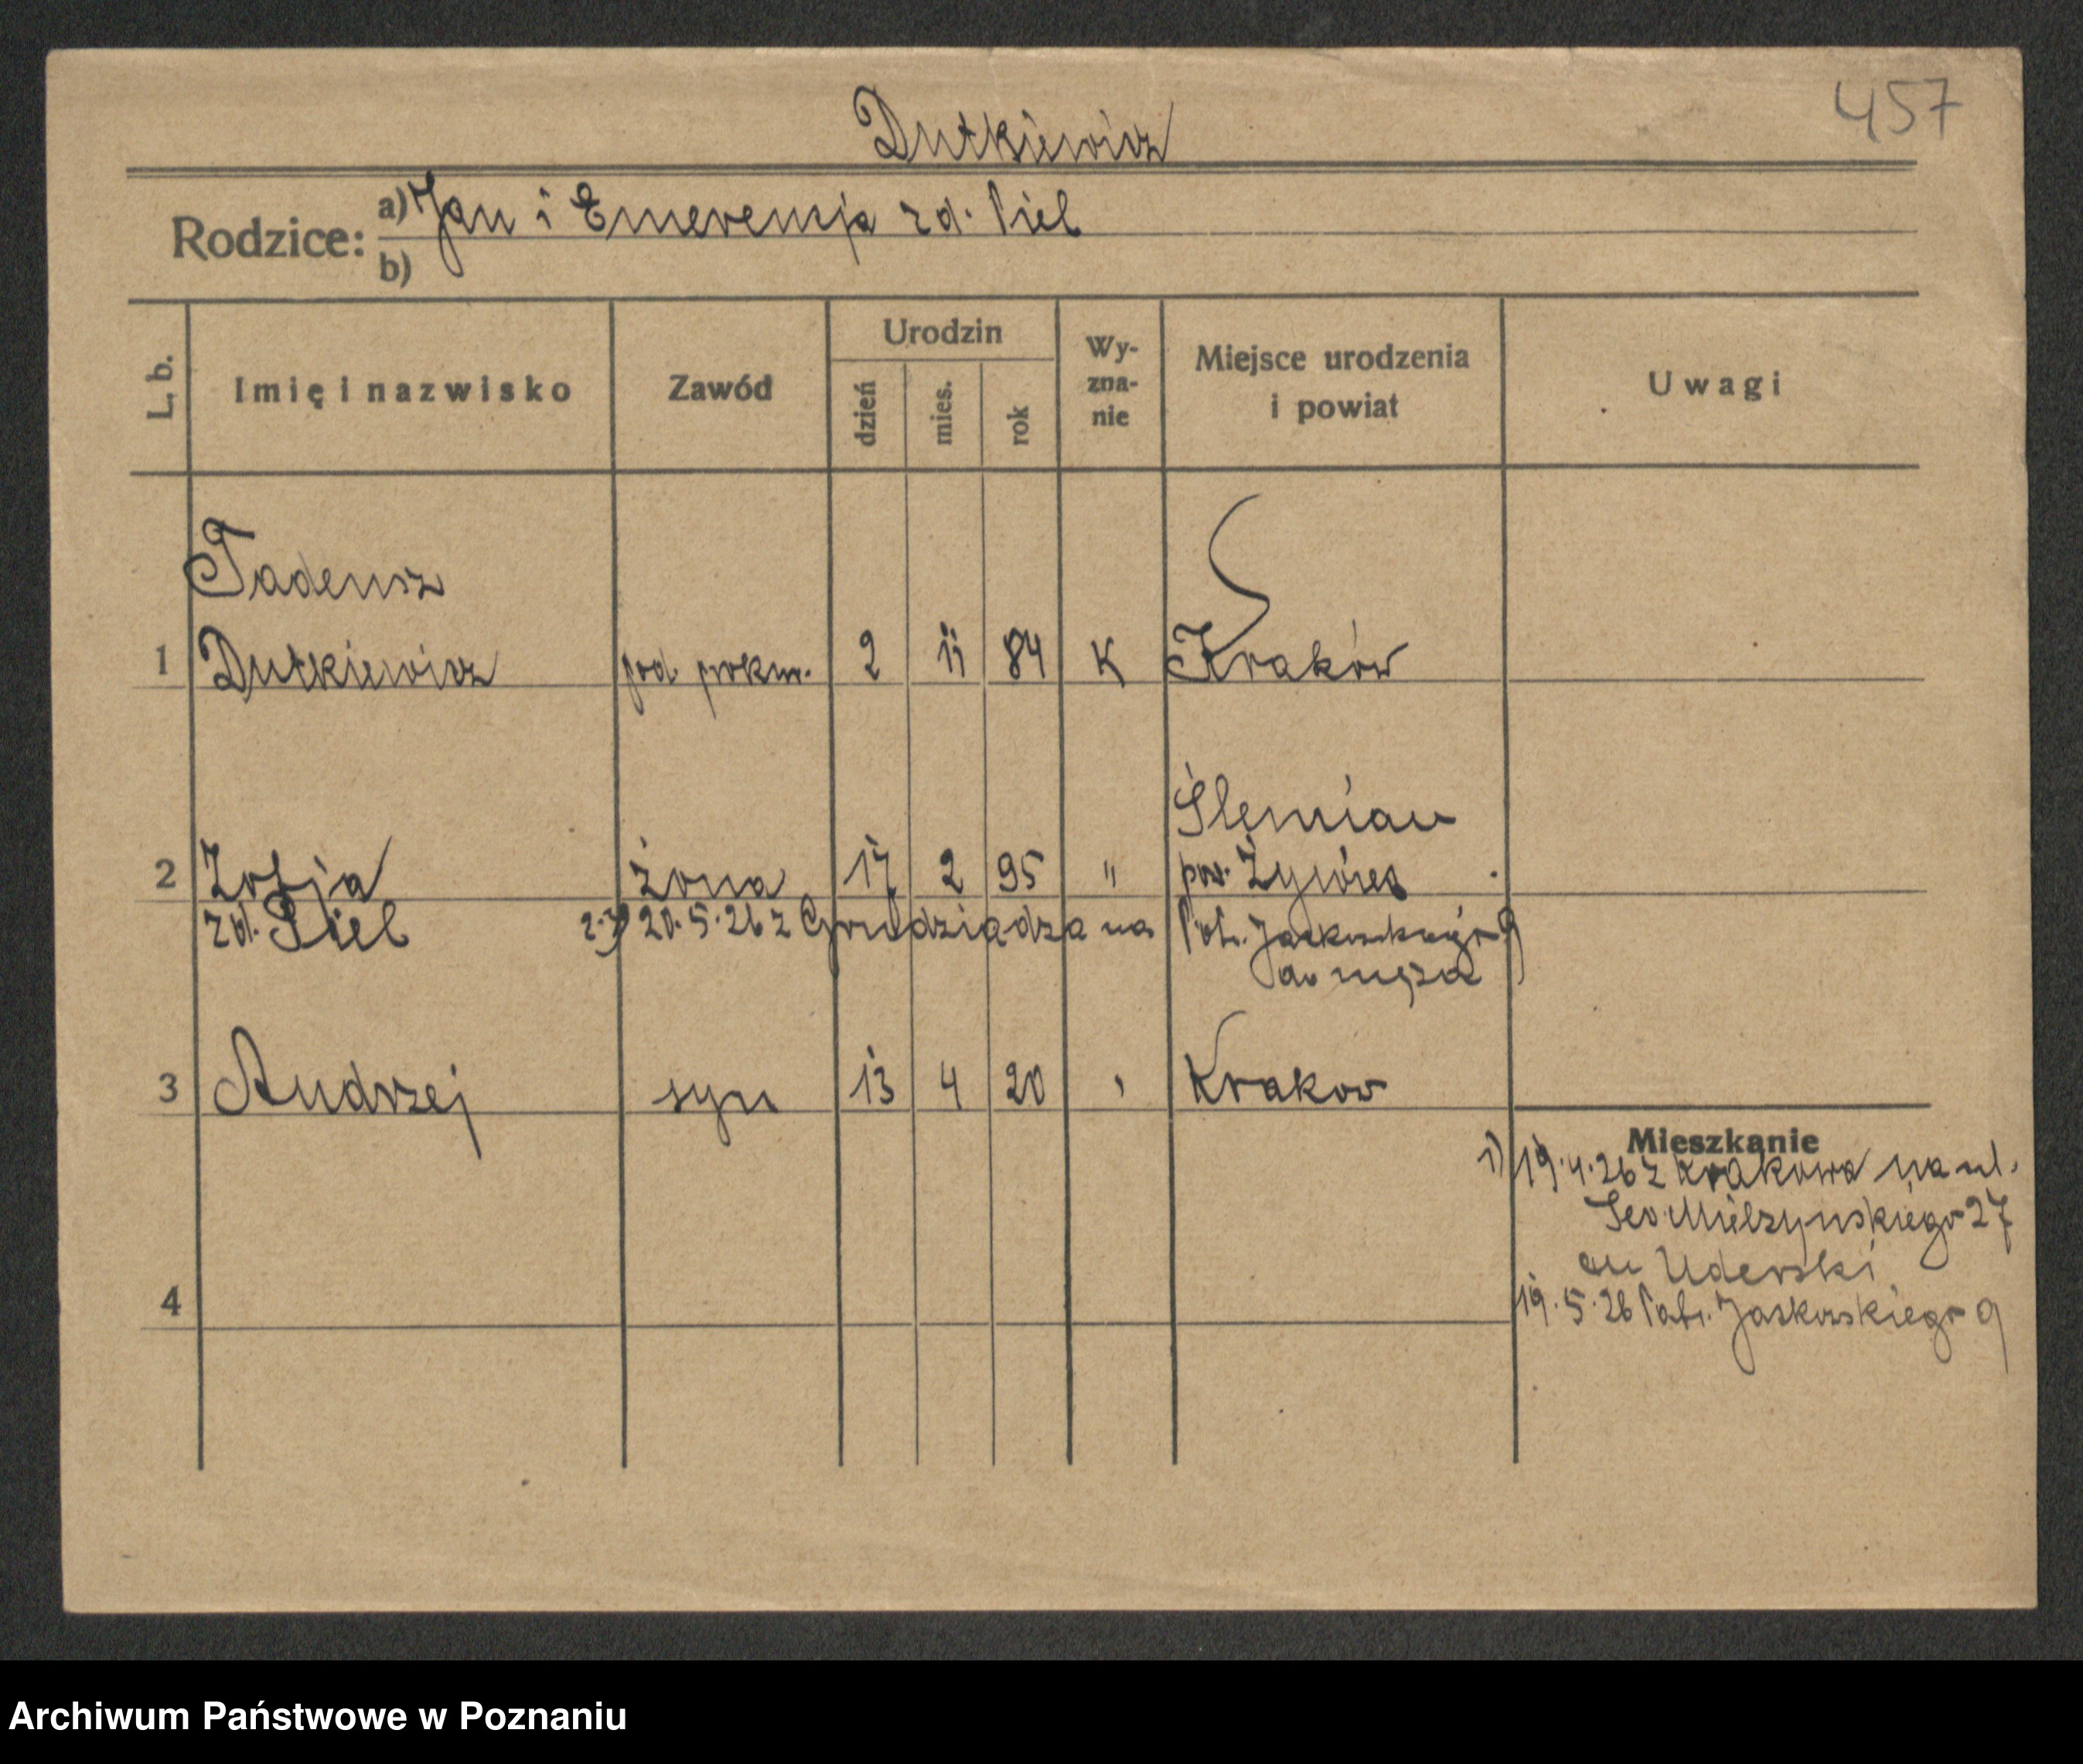 457
Dutkiewicz
Rodzice: a) Jan i Emerencja zd. Piel
b)
L. b. Imię i nazwisko Zawód Urodzin dzień mies. rok Wy-zna-nie Miejsce urodzenia i powiat Uwagi
Tadeusz
1 Dutkiewicz pod prokur. 2 11 84 K Kraków
Ślemian
2 Zofja żona 17 2 95 " pow. Żywiec
zd. Piel 2-3) 20.5.26 z Grudziądza na Patr. Jackowskiego 9
do męża
3 Andrzej syn 13 4 20 " Krakow
Mieszkanie
1) 19.4.26 z Krakowa na ul.
Sew Mielzynskiego 27
au Uderski
19.5.26 Patr. Jaskowskiego 9
4
Archiwum Państwowe w Poznaniu